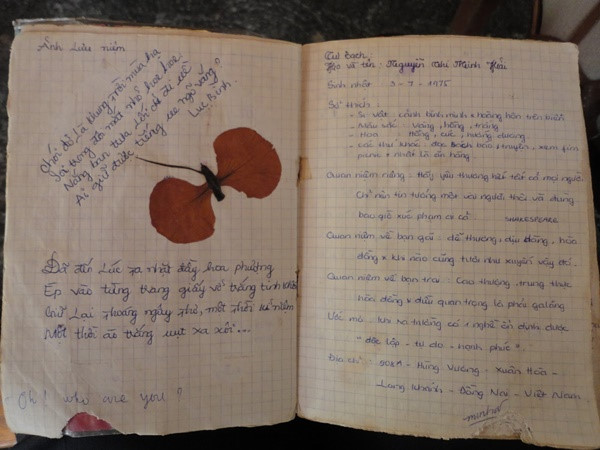 Ảnh lưu niệm
Chói đỏ là phụng trời mùa hạ
Nắng vẫn tựa lối đi
Ai giữ được tiếng ve ngủ vàng?
Lục Bình
Đã đến lúc ra nhặt đầy hoa phượng
Ép vào từng trang giấy vở trắng tinh khôi
Giữ lại thoáng ngây thơ, một thời kỉ niệm
Một thời áo trắng vụt xa xôi...
Oh! who are you?
Tự Bạch
Họ và tên: Nguyễn Thị Minh Hải
Sinh nhật 3-7-1975
Sở thích:
- Si vật: cảnh bình minh & hoàng hôn trên biển
- Màu sắc: Vàng, hồng, trắng
- Hoa: Hồng, cúc, hướng dương
- Các thú khác: đọc sách báo & truyện, xem phim
phim & nhất là ăn hàng.
Quan niệm riêng: Hãy yêu thương hết tất cả mọi người.
Chỉ nên tin tưởng một vài người thôi và đừng
bao giờ xúc phạm ai cả.
SHAKESPEARE
Quan niệm về bạn gái: dễ thương, dịu dàng, hòa
đồng & khi nào cũng tươi như xuyến vậy đó.
Quan niệm về bạn trai: Cao thượng, trung thực
hòa đồng & điều quan trọng là phải galăng
Ước mơ: khi ra trường có 1 nghề ổn định được
"độc lập - tự do - hạnh phúc".
Địa chỉ: Hùng Vương - Xuân Hòa -
Long Khánh - Đồng Nai - Việt Nam